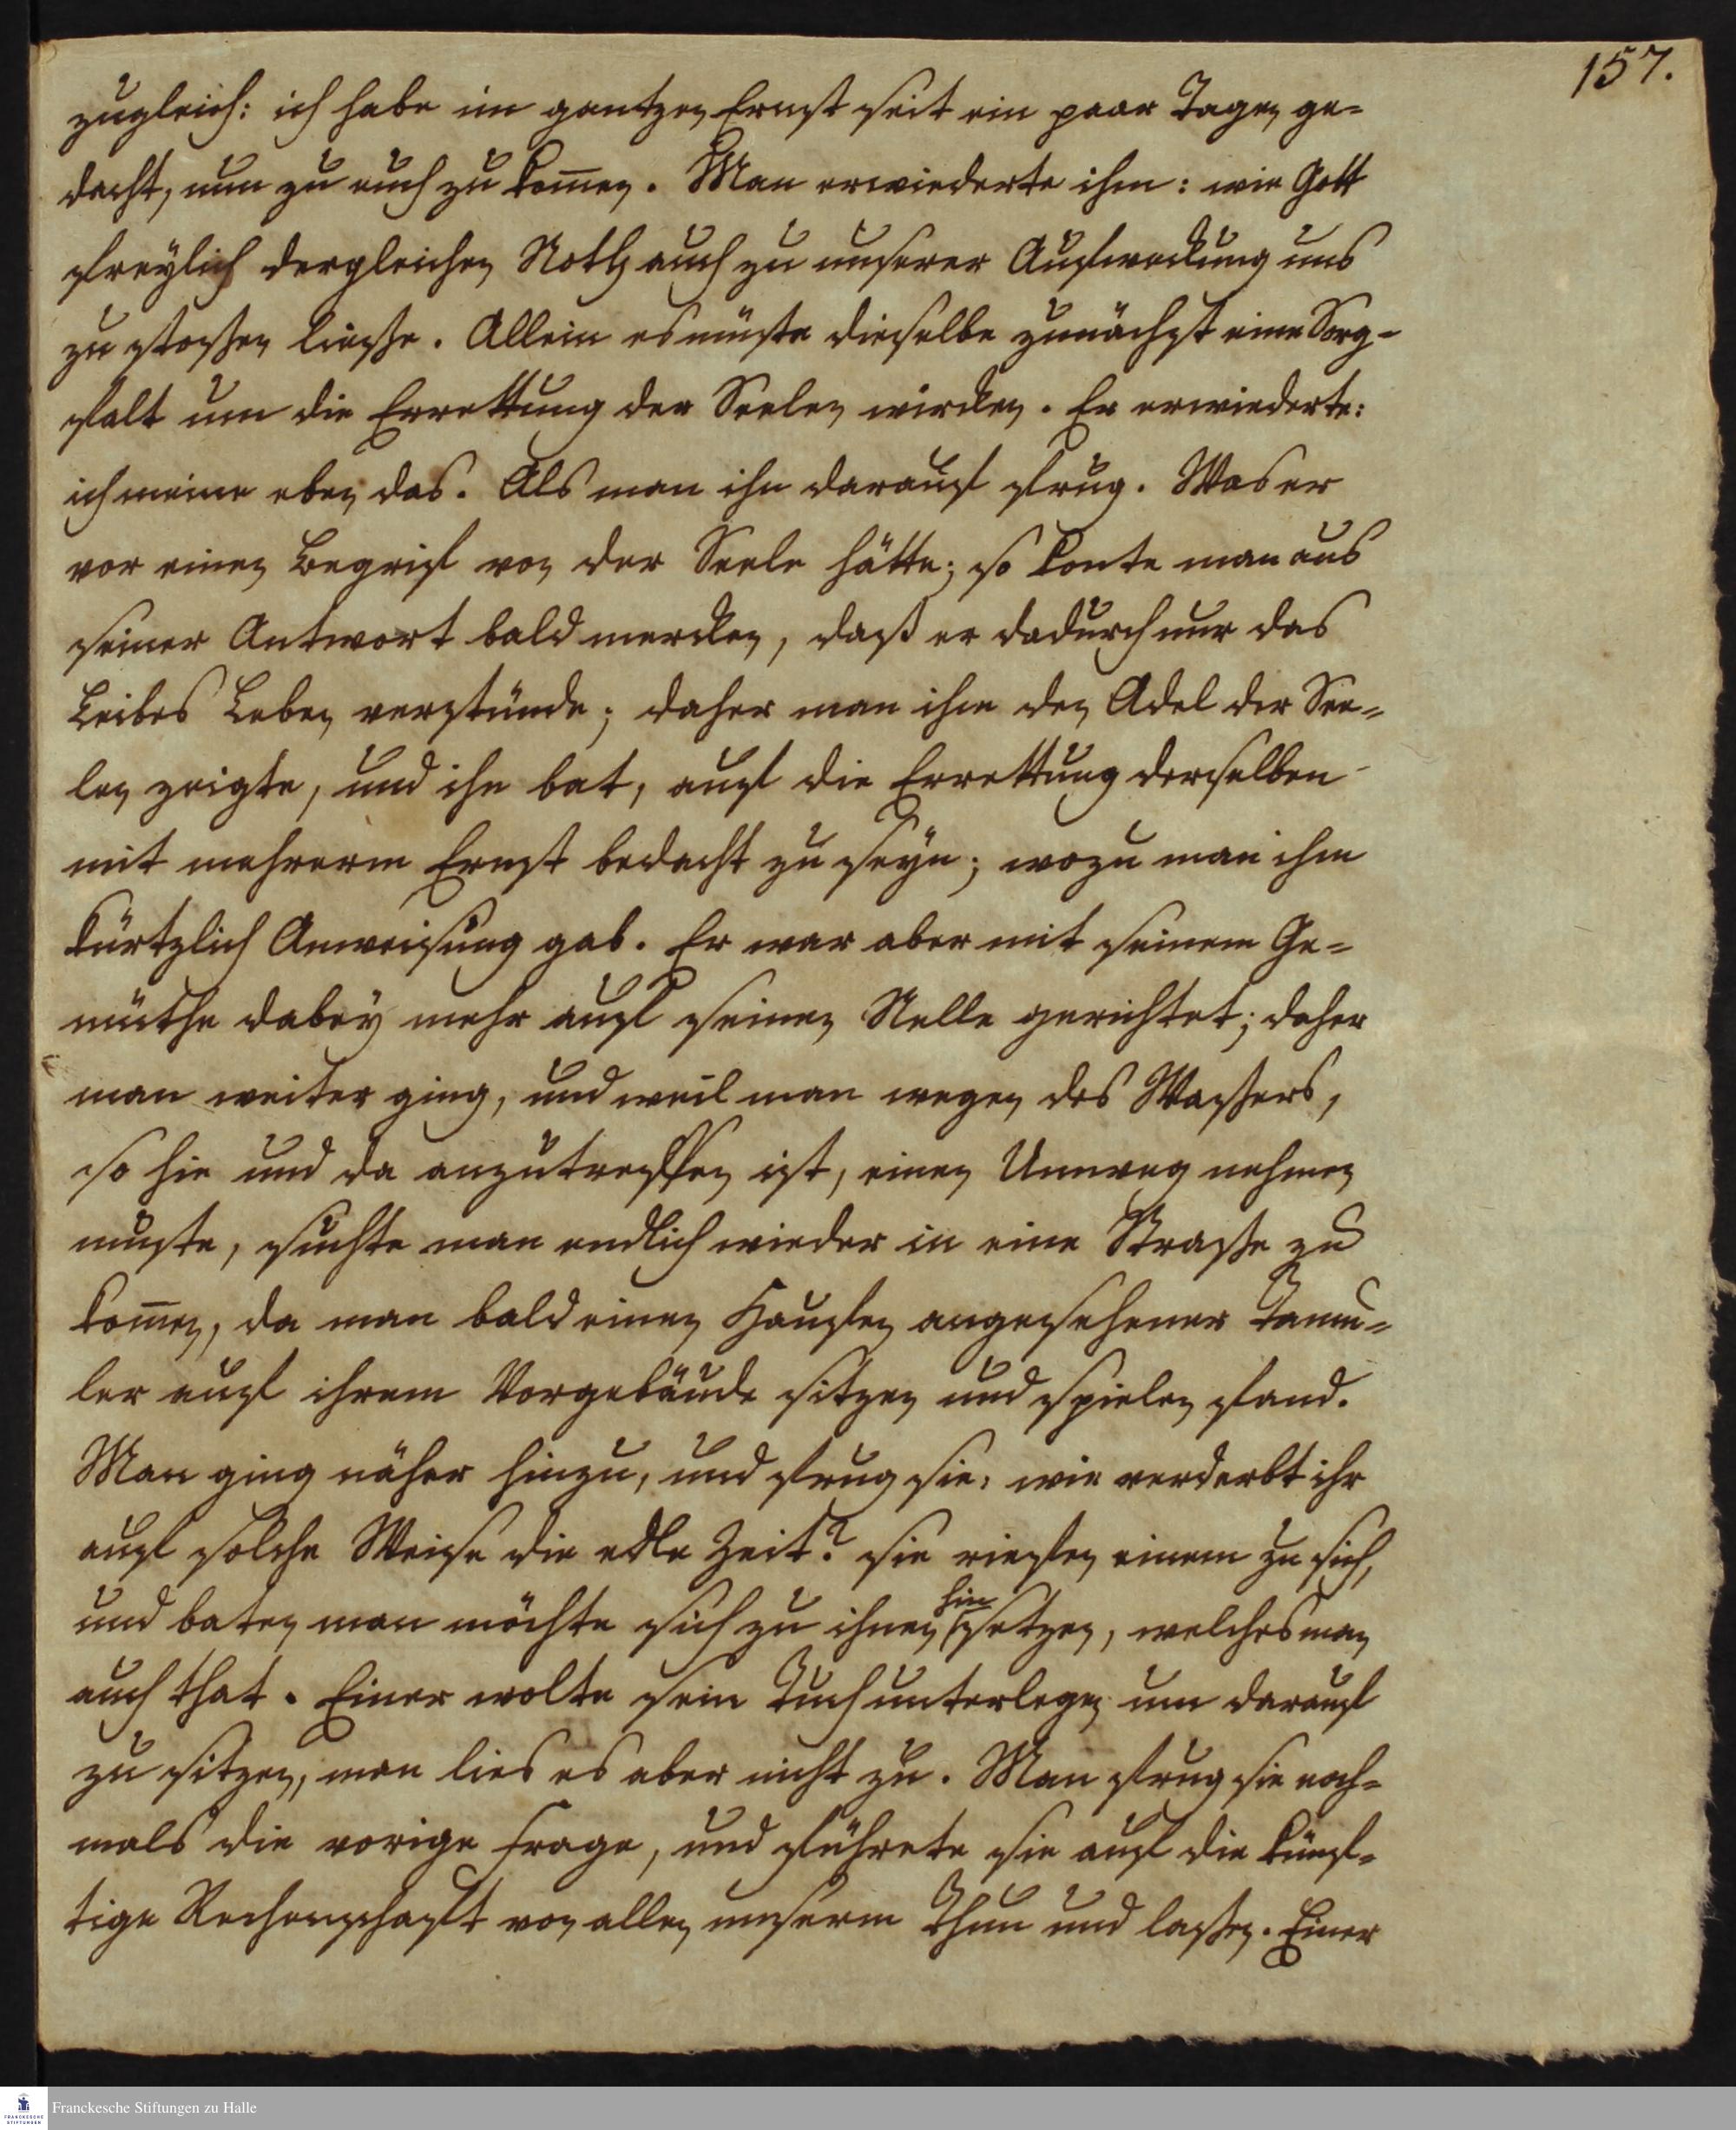 157.
zugleich: ich habe im gantzen Ernst seit ein paar Tagen ge-
dacht, nun zu euch zu kom̅en. Man erwiederte ihm: wie Gott
freylich dergleichen Noth auch zu unserer Aufweckung uns
zu stoßen ließe. Allein es müste dieselbe zunächst eine Sorg-
falt um die Errettung der Seelen wircken. Er erwiederte:
ich meine eben das. Als man ihn darauf frug. Was er
vor einen Begrif von der Seele hätte; so konte man aus
seiner Antwort bald mercken, daß er dadurch nur das
Leibes Leben verstünde; daher man ihm den Adel der See-
len zeigte, und ihn bat, auf die Errettung derselben
mit mehrerm Ernst bedacht zu seyn; wozu man ihm
kürtzlich Anweisung gab. Er war aber mit seinem Ge-
müthe dabey mehr auf seinen Nelle gerichtet; daher
man weiter ging, und weil man wegen des Waßers,
so hie und da anzutreffen ist, einen Umweg nehmen
muste, suchte man endlich wieder in eine Straße zu
kom̅en, da man bald einen Haufen angesehener Tamu-
ler auf ihrem Vorgebäude sitzen und spielen fand.
Man ging näher hinzu, und frug sie: wie verderbt ihr
auf solche Weise die edle Zeit? sie riefen einem zu sich,
und baten man möchte sich zu ihnen hin setzen, welches man
auch that. Einer wolte sein Tuch unterlegen um darauf
zu sitzen, man lies es aber nicht zu. Man frug sie noch-
mals die vorige Frage, und führete sie auf die künf-
tige Rechenschafft von allen unserm Thun und laßen. Einer
Franckesche Stiftungen zu Halle
FRANCKESCHE
STIFTUNGEN